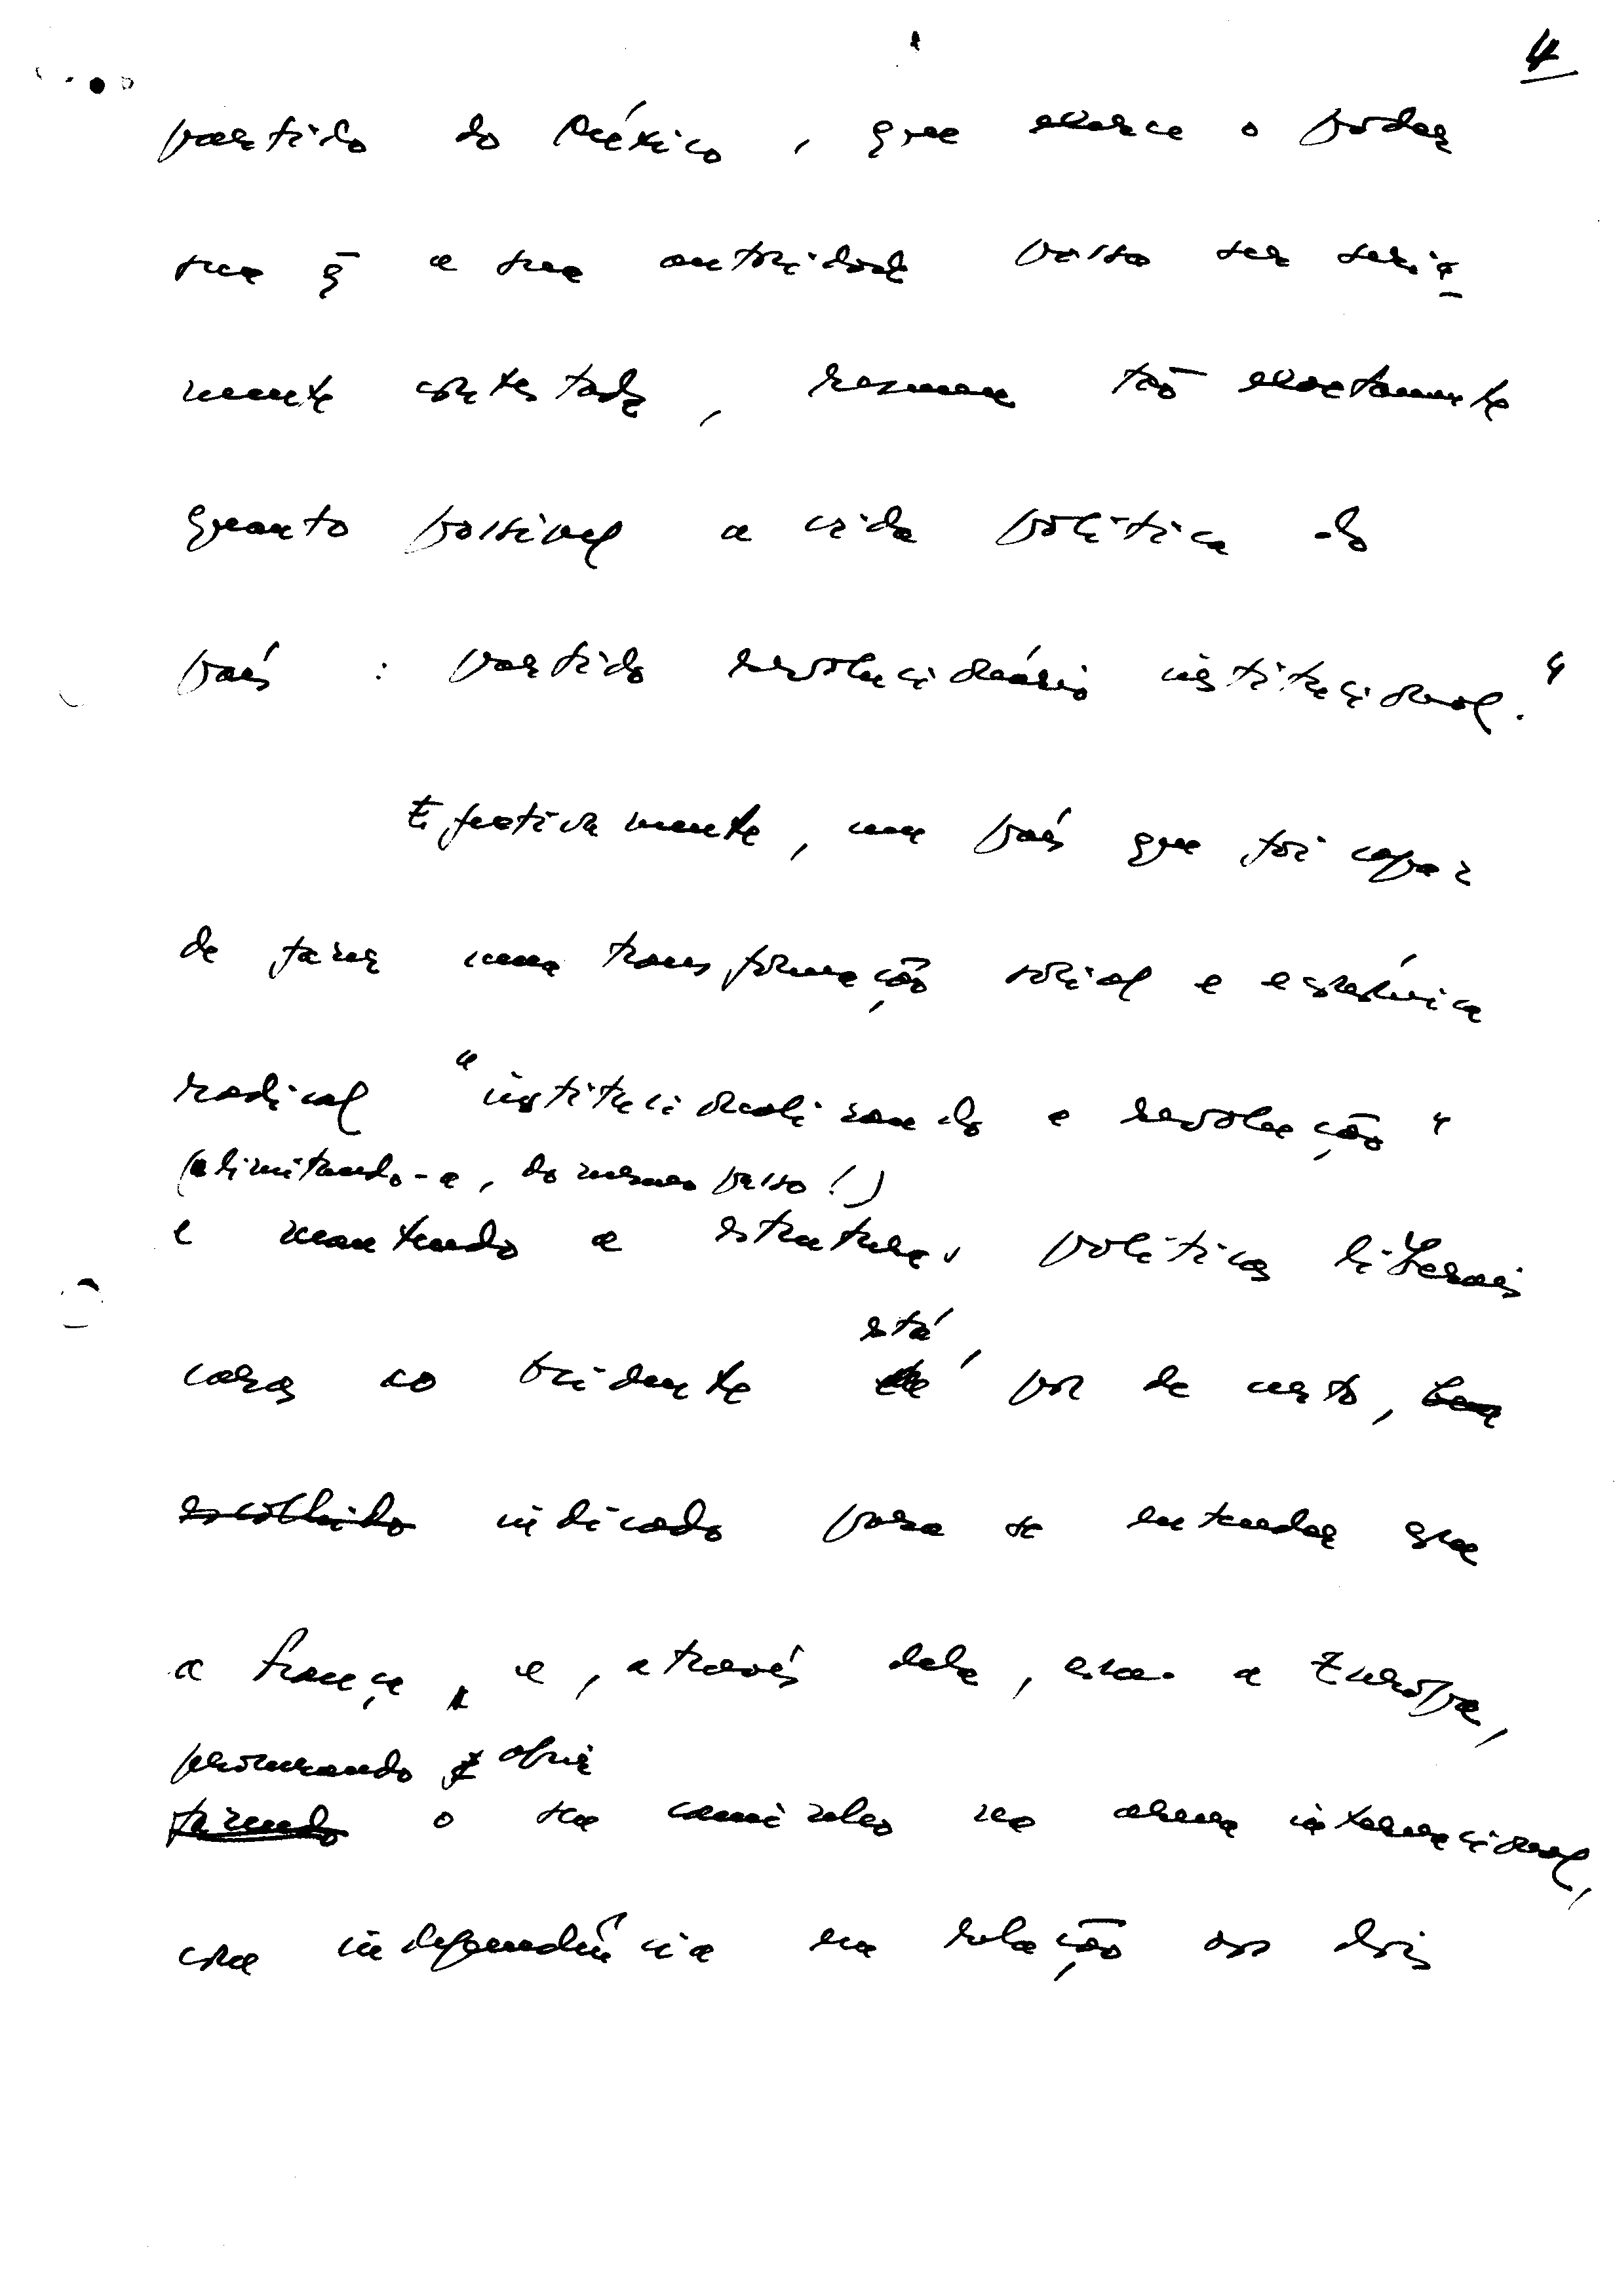 4
partido do México, que exerce o poder
sem q̄ a sua autoridade possa ser seria
mente contestada, resume tão exatamente
quanto possível a vida política do
país : partido revolucionário institucional."
Efetivamente, um país que foi capaz
de fazer uma transformação social e econômica
radical "institucionalizando a revolução"
(e limitando-a, do mesmo passo!)
e mantendo as estruturas políticas liberais
caras ao ocidente
está,
por de certo, bem
escolhido indicado para se entender com
a França, e, através dela, com a Europa,
procurando abrir
fazendo o seu caminho na arena internacional,
com independência em relação aos dois